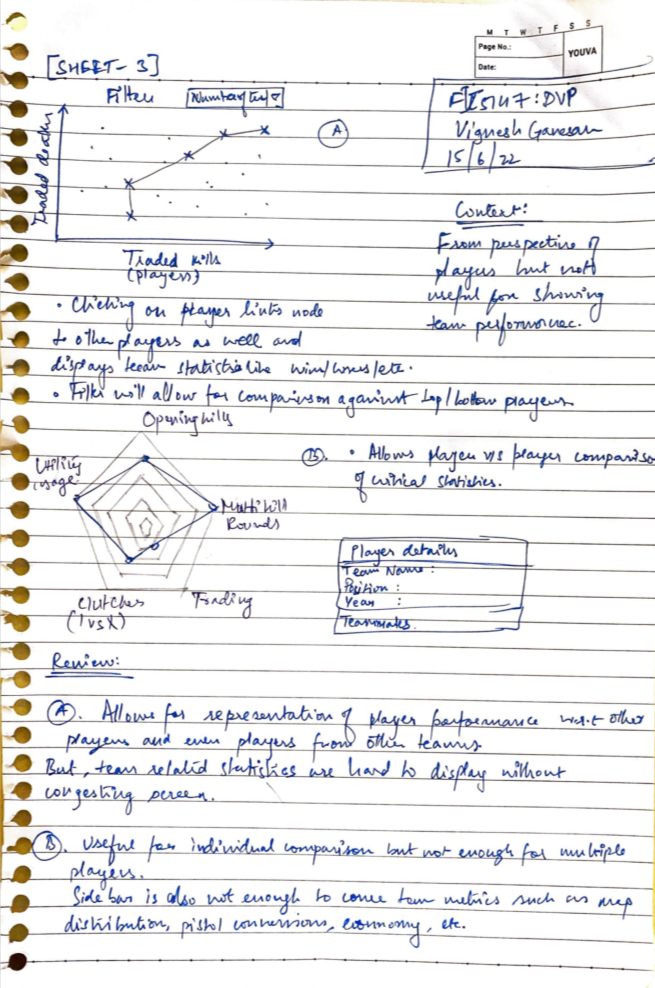 M T W T F S S
Page No.:
Date:
YOUVA
[SHEET - 3]
FIT5147: DVP
Vignesh Ganesan
15/6/22
Filter
Traded deaths
A
Traded kills
(players)
Context:
From perspective of
players but not
useful for showing
team performance.
• Clicking on player links node
to other players as well and
displays team statistics like wins/losses/etc.
• Filter will allow for comparison against top/bottom players
Opening kills
Utility
usage
Multi kill
Rounds
Clutches
(1vsX)
Trading
B. • Allows player v/s player comparison
of critical statistics.
Player details
Team Name :
Position :
Year :
Teammates.
Review:
A. Allows for representation of player performance w.r.t other
players and even players from other teams.
But, team related statistics are hard to display without
congesting screen.
B. Useful for individual comparison but not enough for multiple
players.
Side bar is also not enough to cover team metrics such as map
distribution, pistol conversions, economy, etc.